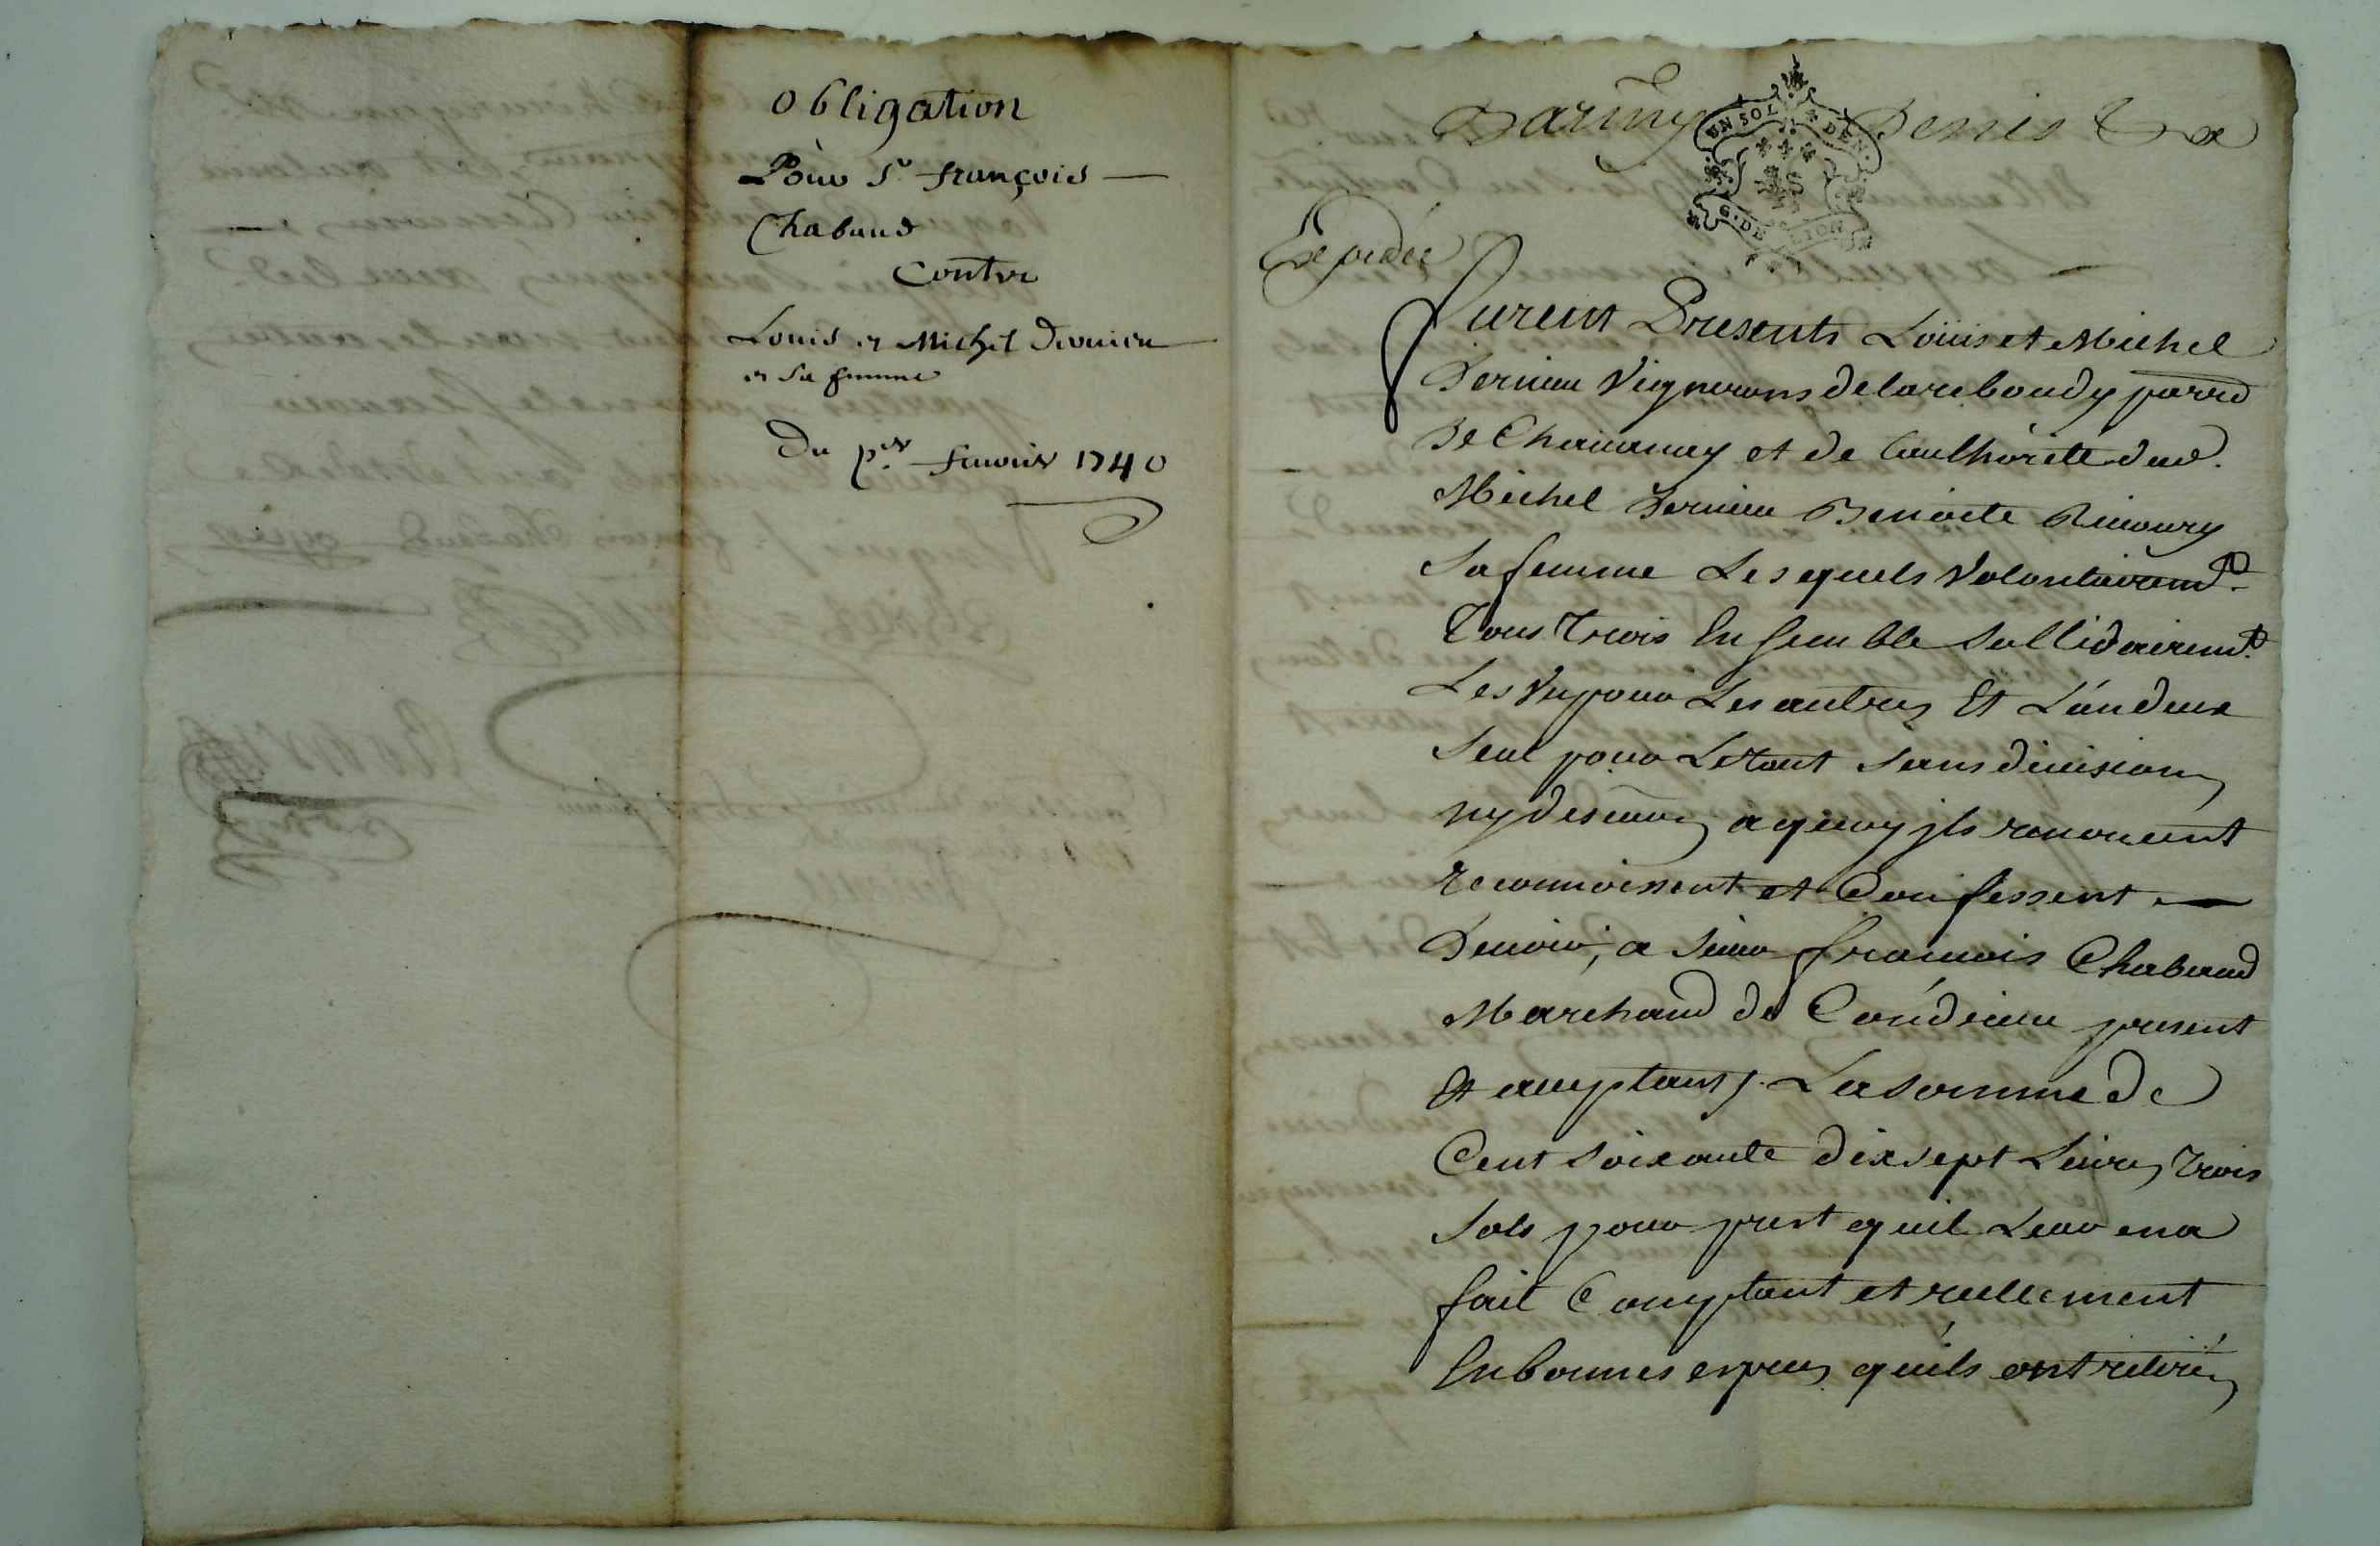 Obligation
Pour Sr françois
Chabaud
Contre
Louis et Michel Dervieu
et Sa femme
Du per feuvrier 1740
UN SOL 4 DEN.
G. DE LION
Expediée
Furent Presents Loüis et Michel
Dervieu Vignerons de lareboudy parrd
De Chauanay et de Lauthorité dud.
Michel Dervieu Benoite
Sa femme Lesquels Volontairemt
Tous Trois Ensemble Sollidairemt
Les Vns pour Les autres Et L'un deux
Seul pour Le tout Sans diuision
ny discution a quoy jls renoncent
reconnoissent et Confessent
Deuoir, a Sieur francois Chabaud
Marchand de Condrieu present
Et acceptant La Somme de
Cent Soixante dix sept Liures Trois
Sols pour prest quil Leur en a
fait Comptant et reellement
En bonnes especes quils ont retirées